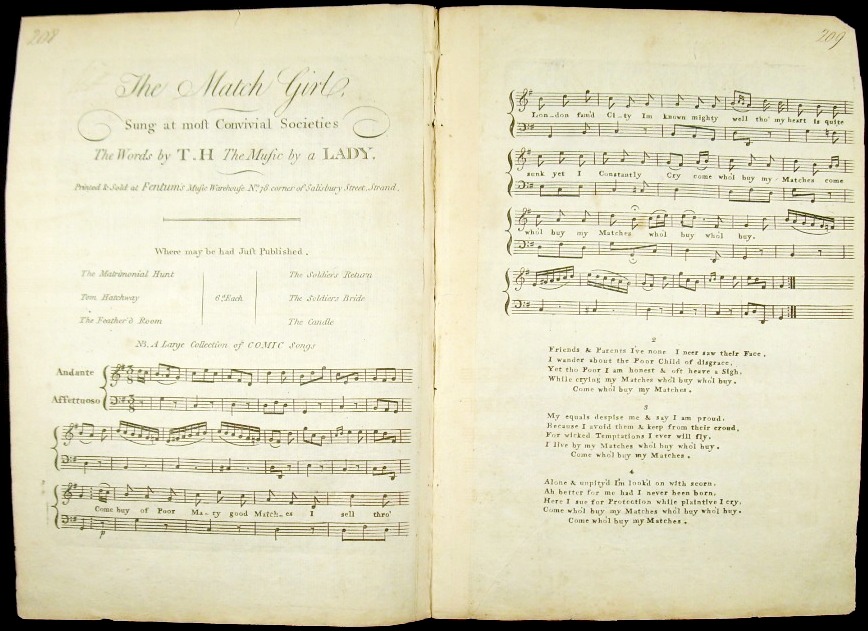 208
The Match Girl.
Sung at most Convivial Societies
The Words by T.H The Music by a LADY.
Printed & Sold at Fentum's Music Warehouse No. 78 corner of Salisbury Street, Strand.
Where may be had Just Published.
The Matrimonial Hunt
Tom Hatchway
The Feather'd Room
6d Each
The Soldiers Return
The Soldiers Bride
The Candle
NB. A Large Collection of COMIC Songs
Andante
Affettuoso
Come buy of Poor Ma-ry good Match-es I sell thro'
p
209
Lon-don fam'd Ci-ty Im known mighty well tho' my heart is quite
sunk yet I Constantly Cry come who'l buy my Matches come
who'l buy my Matches who'l buy who'l buy.
2
Friends & Parents I've none I neer saw their Face,
I wander about the Poor Child of disgrace,
Yet tho Poor I am honest & oft heave a Sigh,
While crying my Matches who'l buy who'l buy.
Come who'l buy my Matches.
3
My equals despise me & say I am proud,
Because I avoid them & keep from their croud,
For wicked Temptations I ever will fly.
I live by my Matches who'l buy who'l buy.
Come who'l buy my Matches.
4
Alone & unpity'd I'm look'd on with scorn.
Ah better for me had I never been born.
Here I sue for Protection while plaintive I cry.
Come who'l buy my Matches who'l buy who'l buy.
Come who'l buy my Matches.